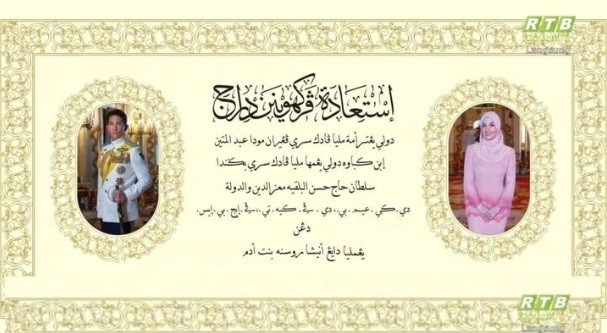 RTB
Langsung
إستعادة ڤركهوينن دراج
دولي يڠتر أمة مليا ڤادك سري ڤڠيران مودا عبد المتين
إبن كباوه دولي يڠمها مليا ڤادك سري بݢيندا
سلطان حاج حسن البلقيه معزالدين والدولة
دي.كي. عيم. بي، دي. ڤي. كيه. تي،، ڤي. إيچ. بي. إيس.
دڠن
يڠمليا دايڠ أنيشا روسنه بنت آدم
RTB
Langsung